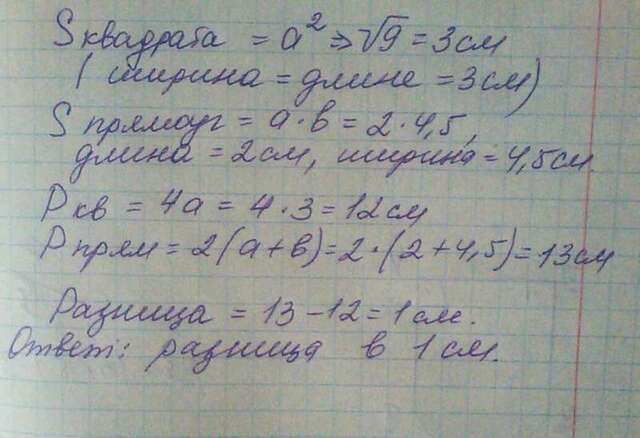 S квадрата = a² => √9 = 3 см
( ширина = длине = 3 см)
S прямоуг = a · b = 2 · 4,5,
длина = 2 см, ширина = 4,5 см.
P кв = 4a = 4 · 3 = 12 см
P прям = 2(a+b) = 2 · (2 + 4,5) = 13 см
Разница = 13 – 12 = 1 см.
Ответ: разница в 1 см.